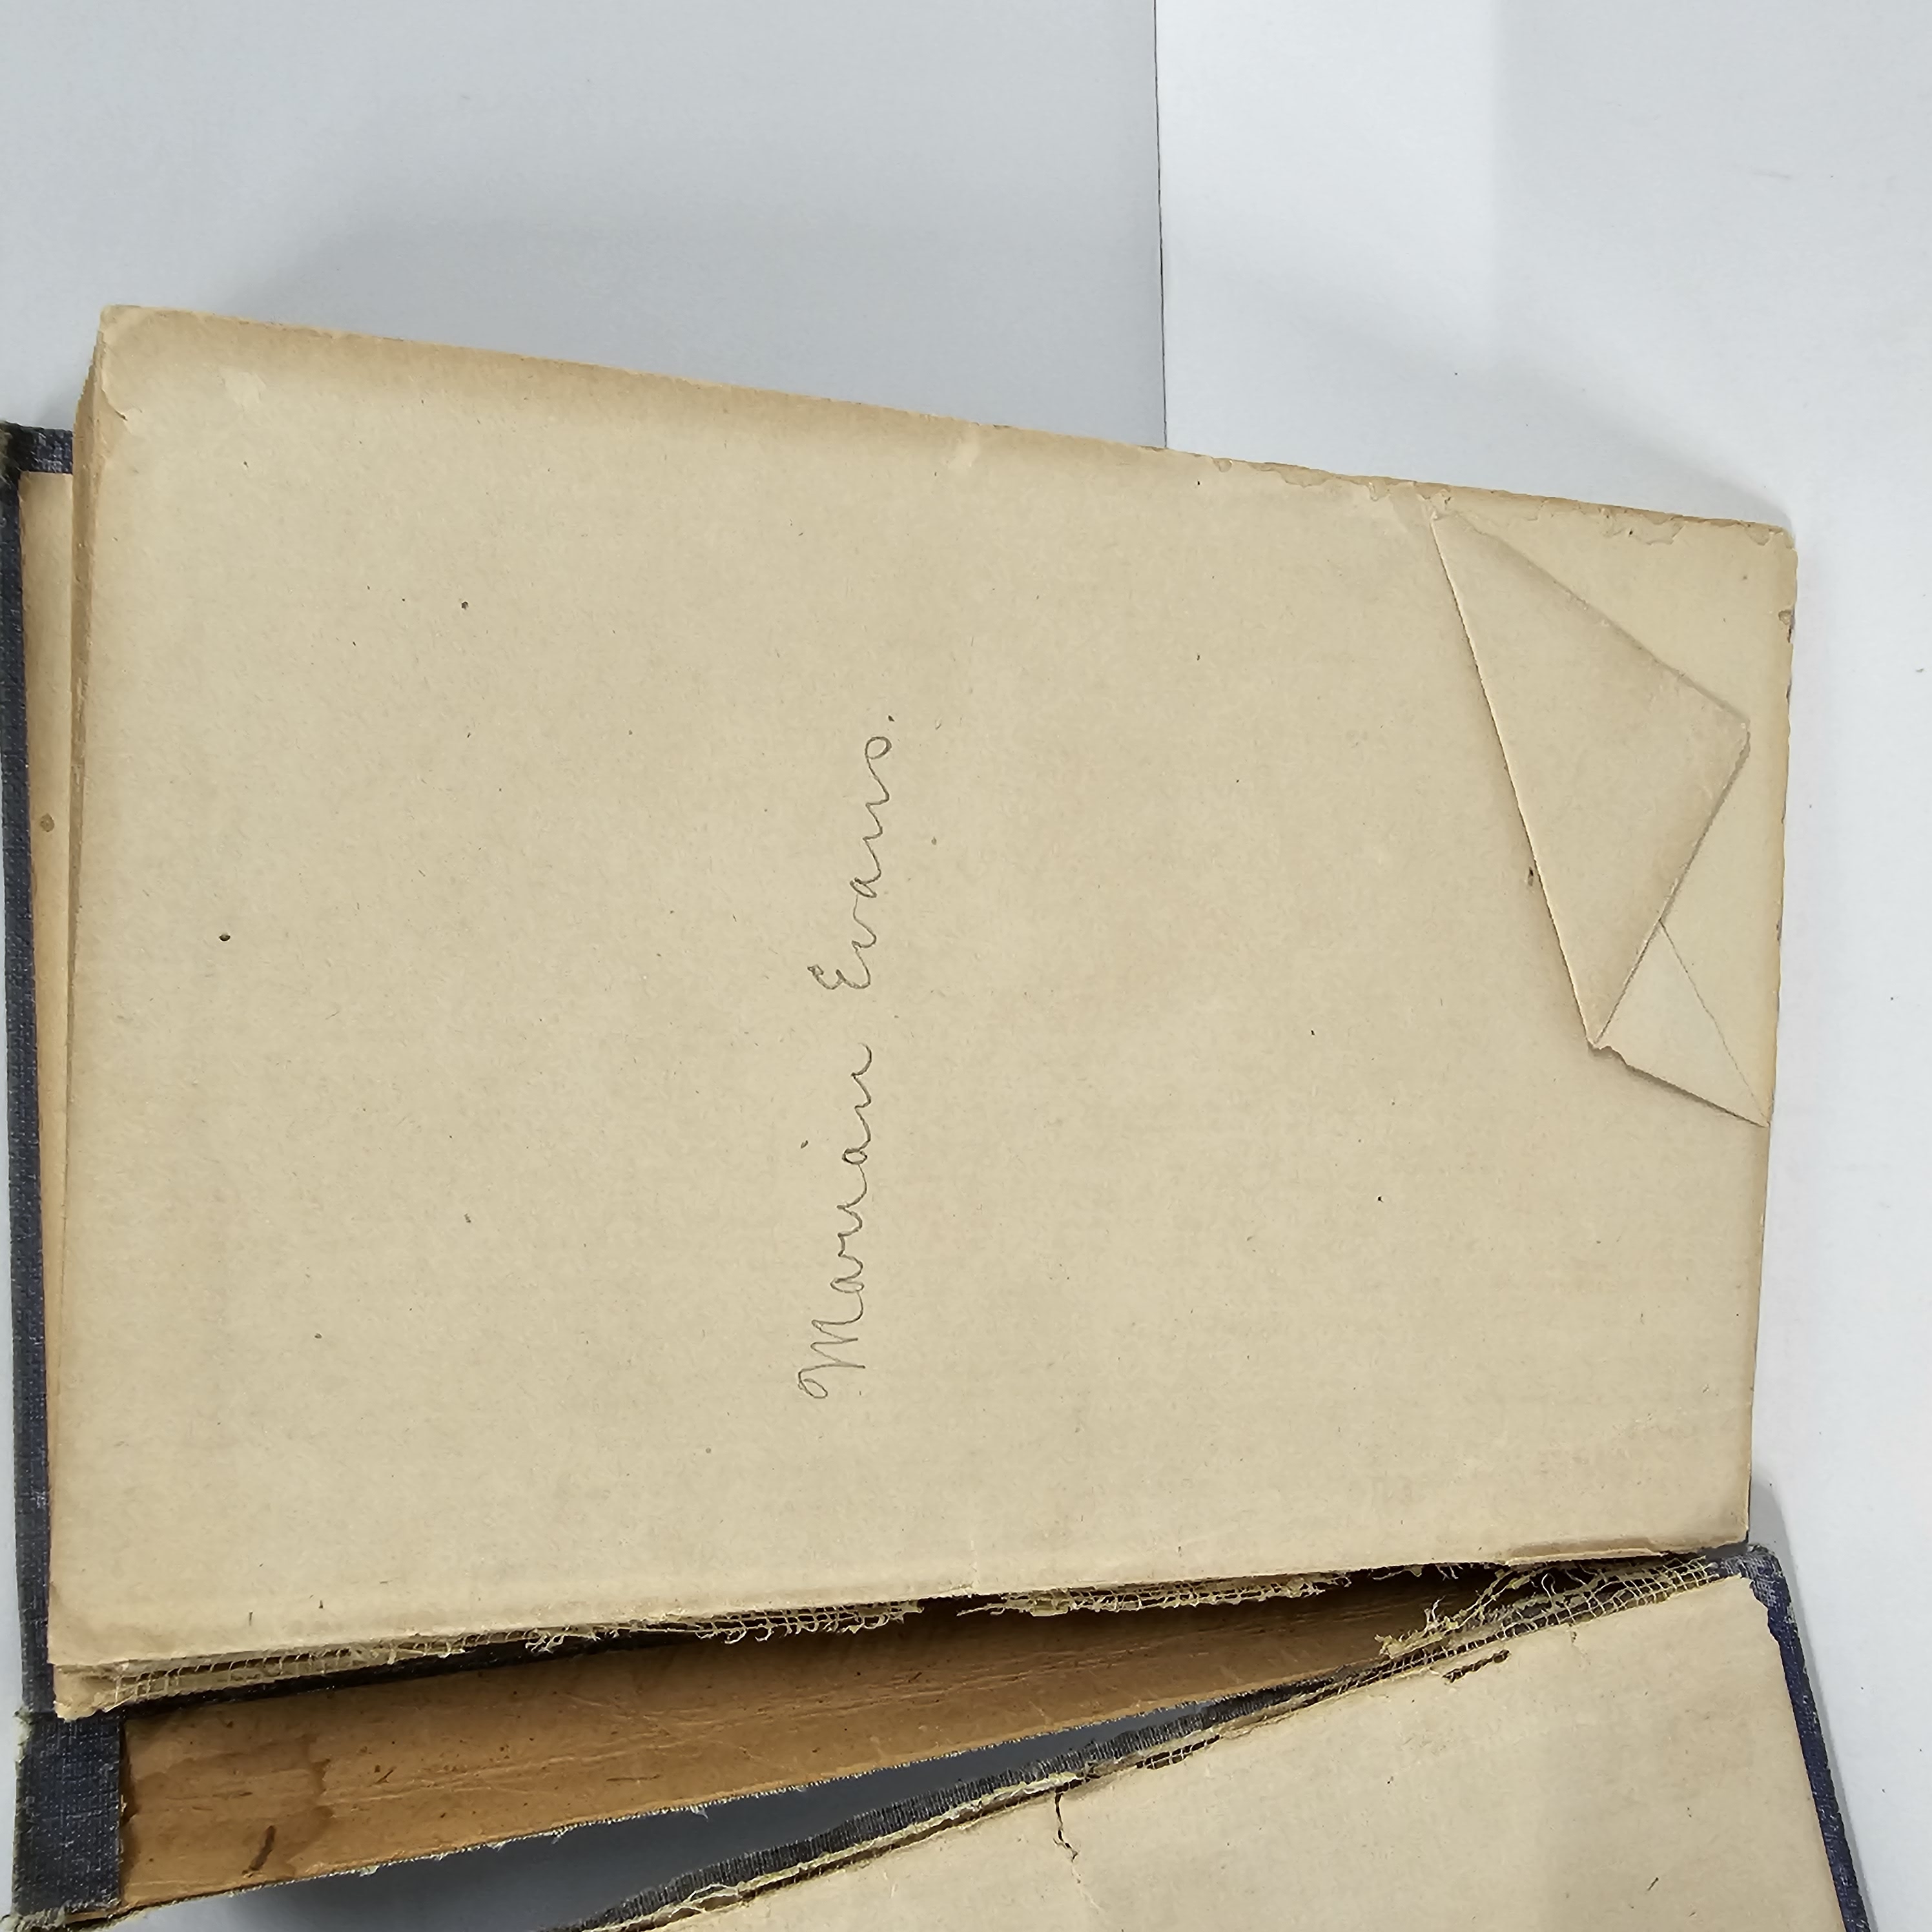 Marian Evans.